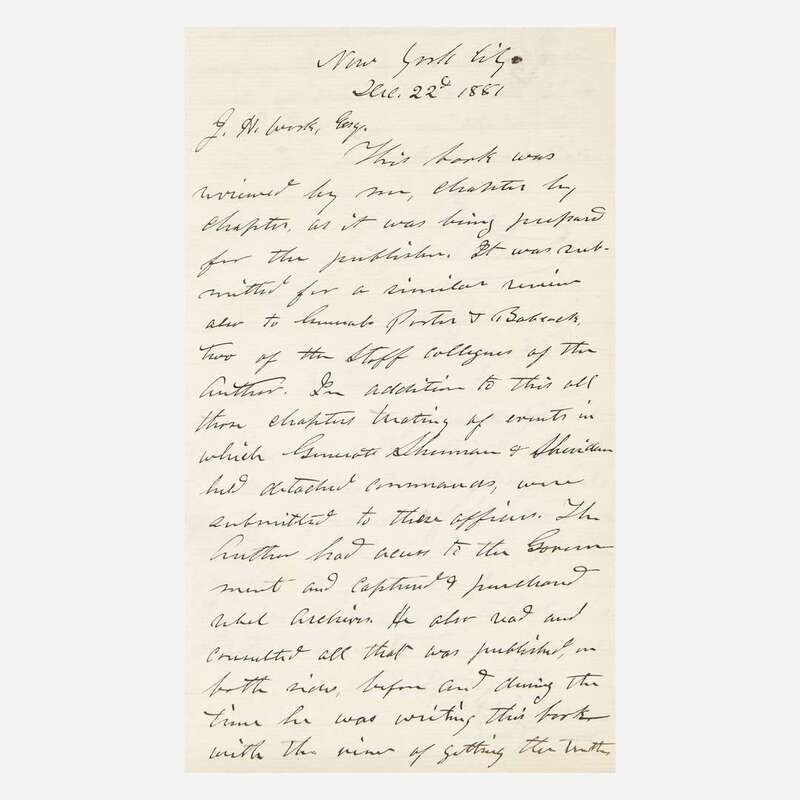 New York City
Dec. 22d 1881
J. H. Work, Esq.
This book was
reviewed by me, chapter by
chapter, as it was being prepared
for the publisher. It was sub-
mitted for a similar review
also to Generals Porter & Babcock,
two of the staff collegues of the
Author. In addition to this all
those chapters treating of events in
which Generals Sherman & Sheridan
held detached commands, were
submitted to these officers. The
Author had access to the Govern-
ment and captured & purchased
rebel Archives. He also read and
consulted all that was published, on
both sides, before and during the
time he was writing this book
with the view of getting the truth